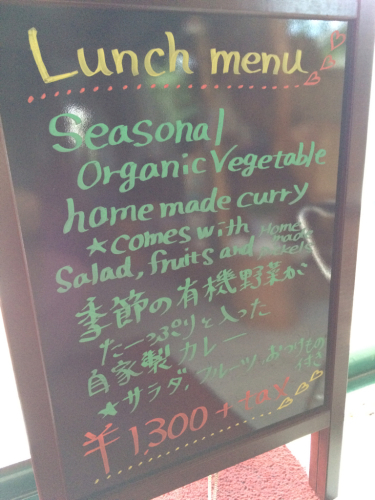 Lunch menu
Seasonal
Organic Vegetable
home made curry
★comes with
Salad, fruits and Home made pickels
季節の有機野菜が
たーっぷりと入った
自家製カレー
★サラダ、フルーツ、おつけもの付き
¥1,300+